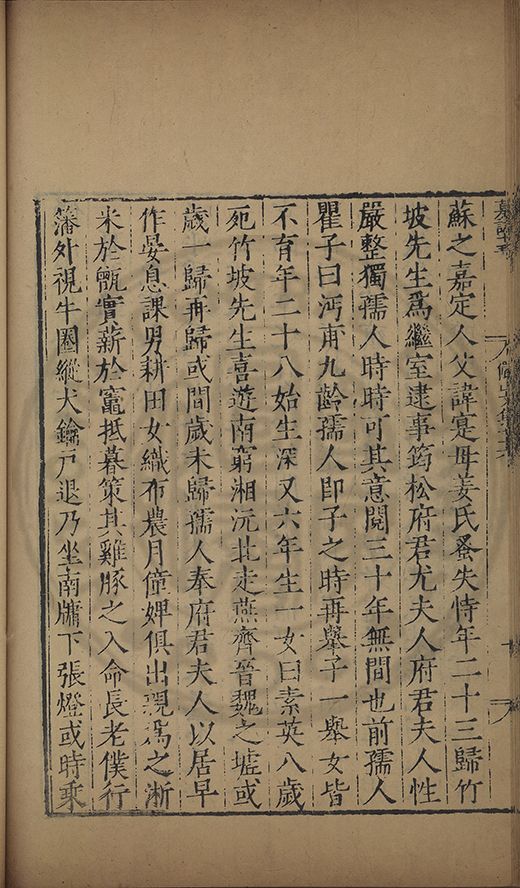 蘇之嘉定人父諱寔母姜氏蚤失恃年二十三歸竹
坡先生爲繼室逮事筠松府君尤夫人府君夫人性
嚴整獨孺人時時可其意閱三十年無間也前孺人
瞿子曰沔甫九齡孺人即子之時再舉子一舉女皆
不育年二十八始生深又六年生一女曰素英八歲
死竹坡先生喜遊南窮湘沅北走燕齊晉魏之墟或
歲一歸再歸或間歲未歸孺人奉府君夫人以居早
作晏息課男耕田女織布農月僮婢俱出親爲之淅
米於甑實薪於竈抵暮策其雞豚之入命長老僕行
籓外視牛圈縱犬鑰戶退乃坐南牖下張燈或時乘